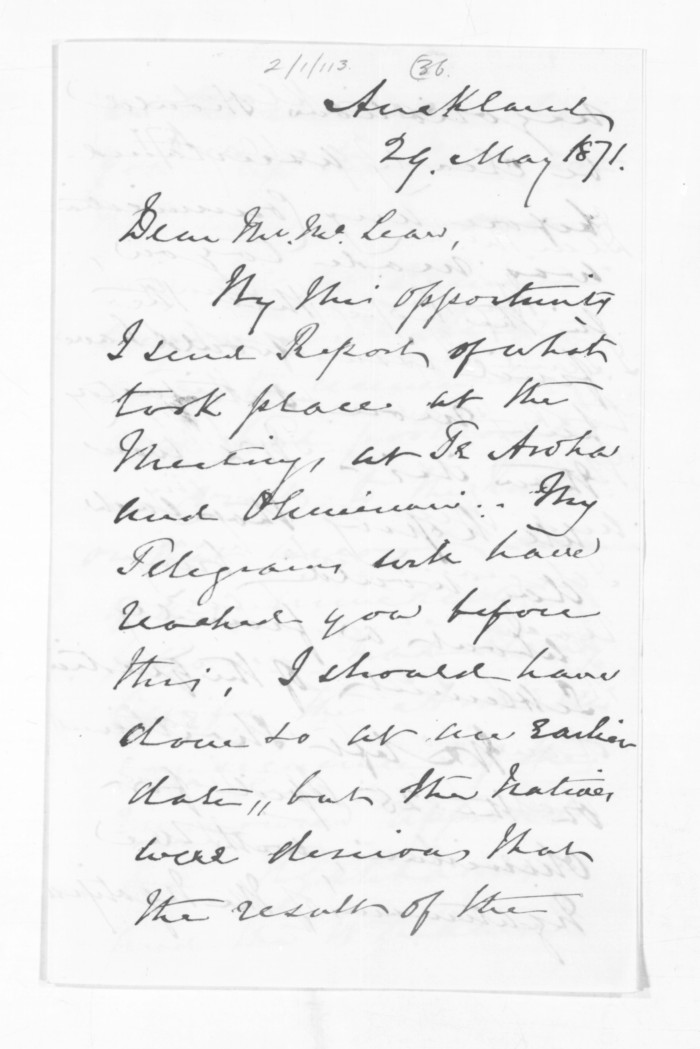 2/1/113. 36.
Auckland
29. May 1871.
Dear Mr. Mc. Lean,
By this opportunity
I send Report of what
took place at the
Meetings at Te Aroha
and Ohinemuri. My
Telegrams will have
reached you before
this, I should have
done so at an Earlier
date,, but the Natives
were desirous that
the result of the